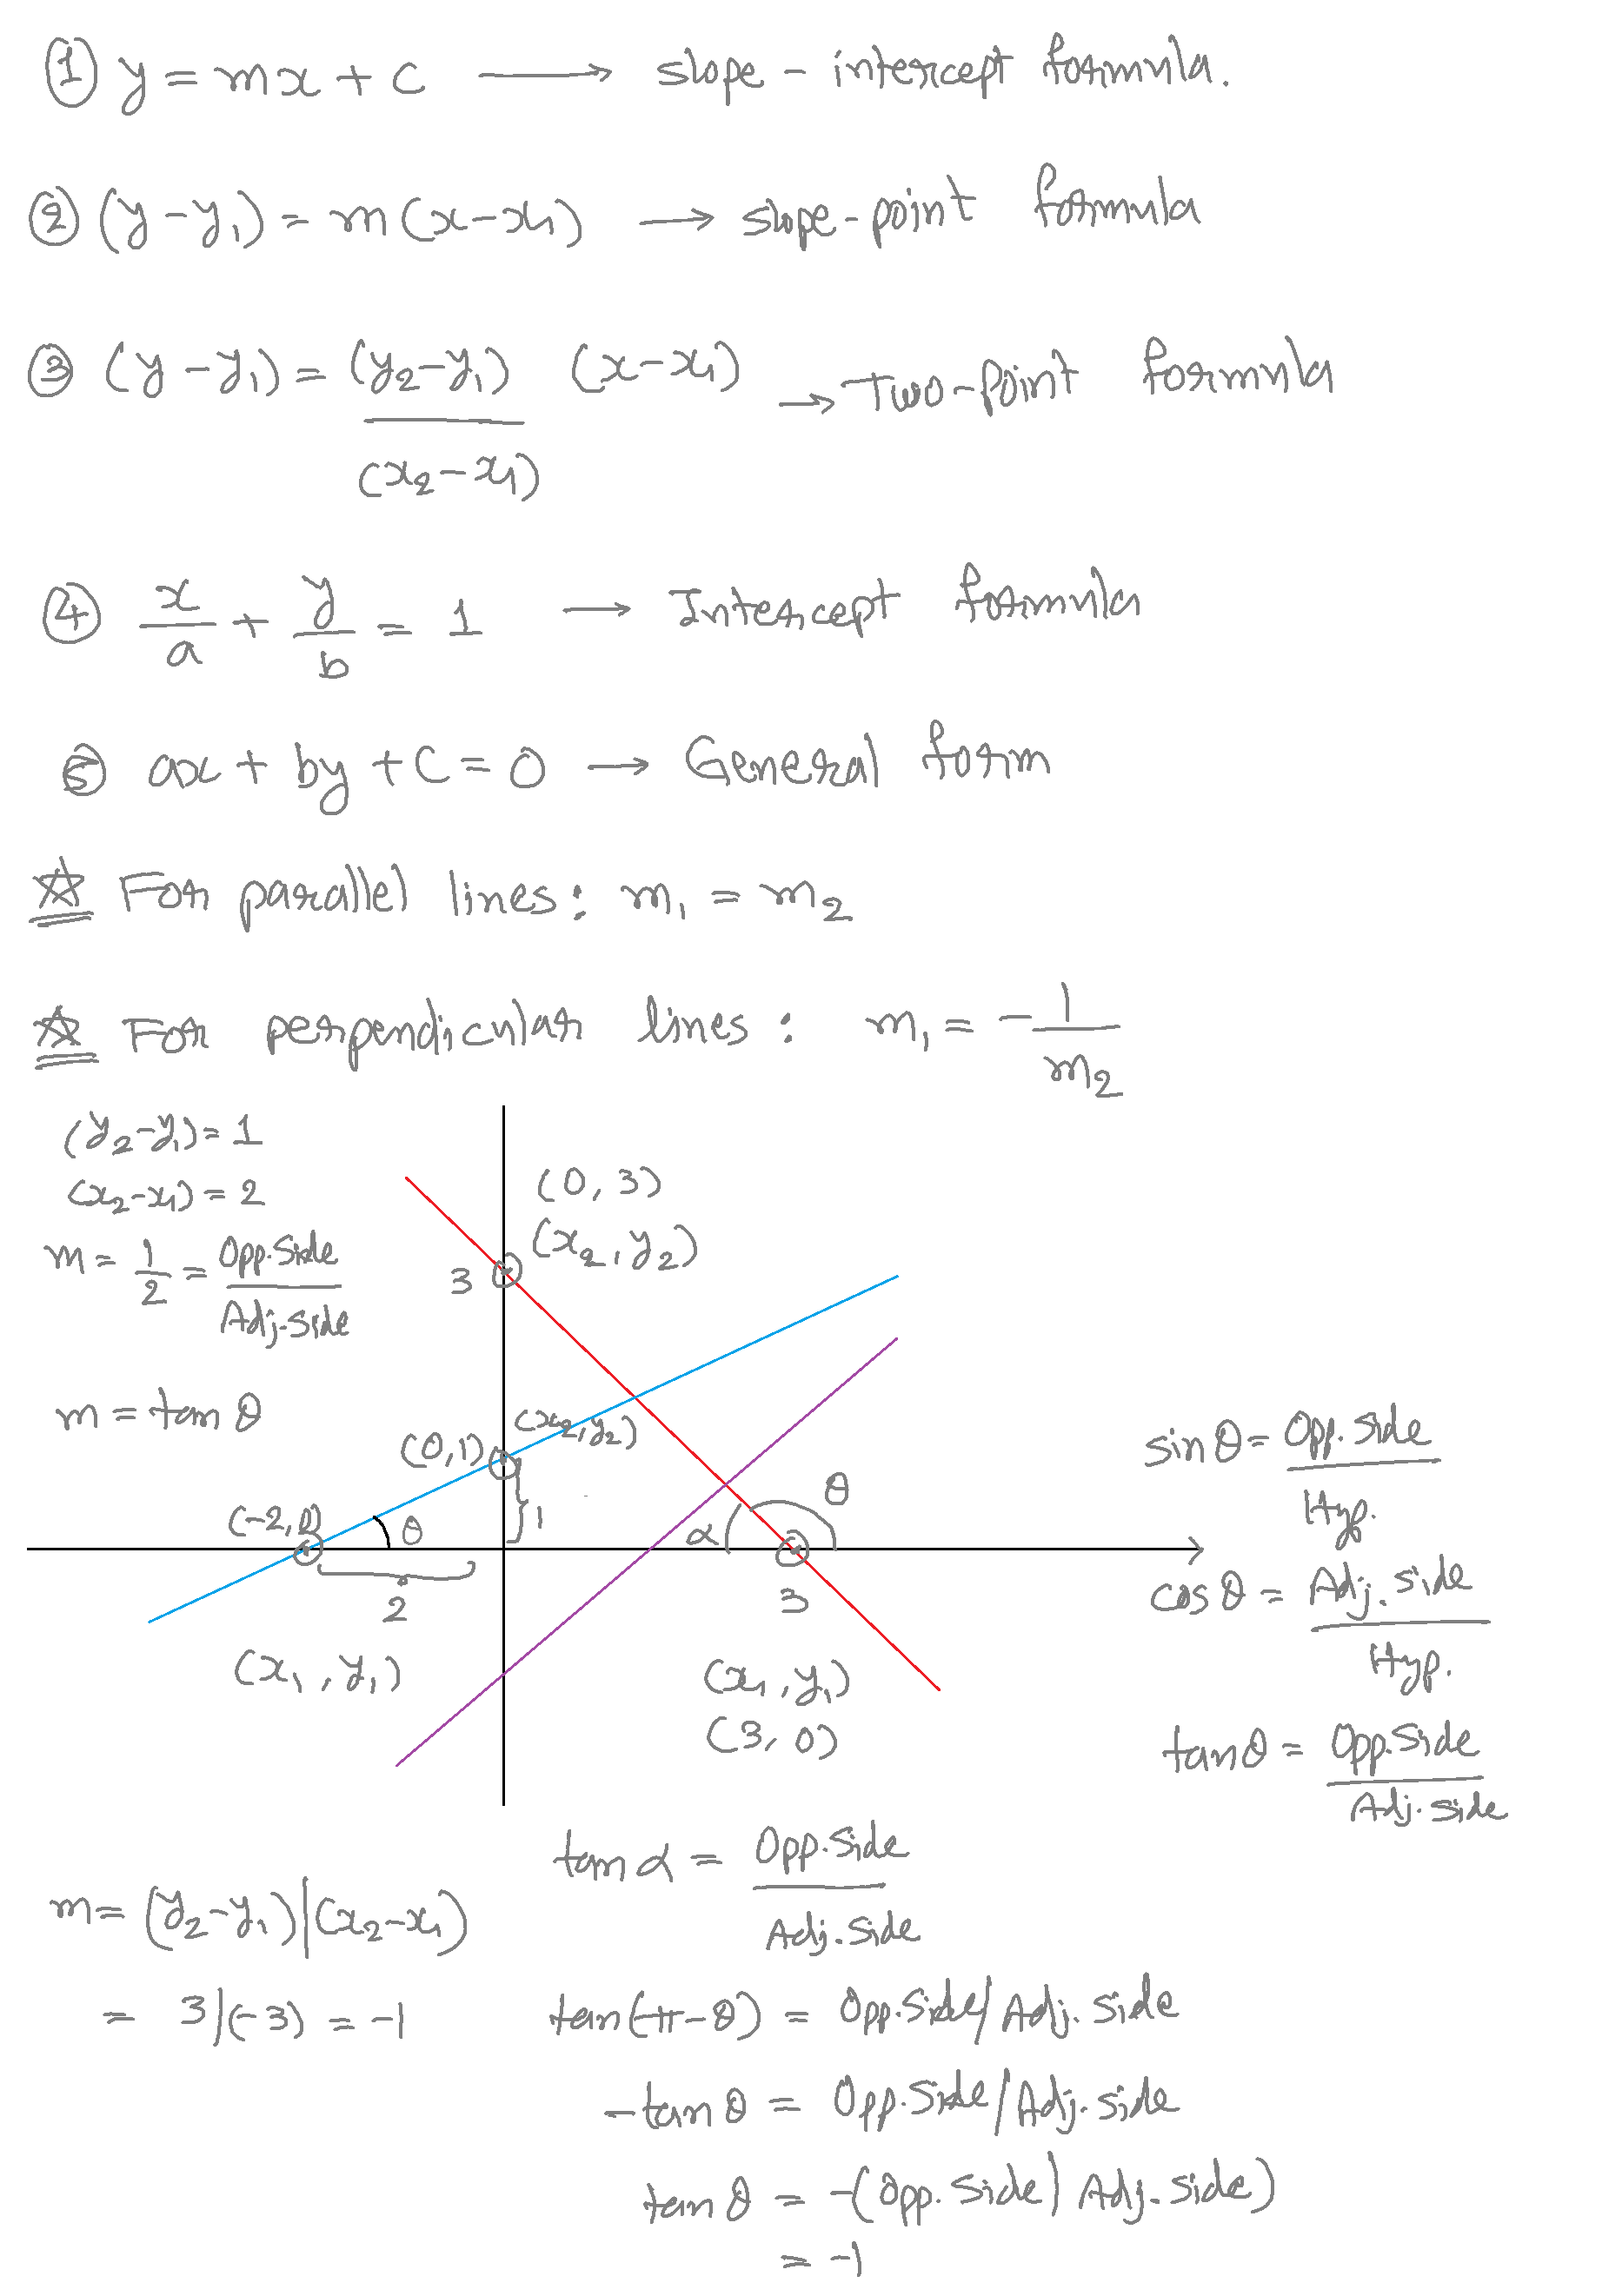 ① y = mx + c ⟶ slope - intercept formula.
② (y - y₁) = m (x - x₁) ⟶ slope-point formula
③ (y - y₁) = (y₂ - y₁) / (x₂ - x₁) (x - x₁) → Two-Point formula
④ x/a + y/b = 1 → Intercept formula
⑤ ax + by + c = 0 → General form
☆ For parallel lines: m₁ = m₂
☆ For perpendicular lines: m₁ = - 1/m₂
(y₂ - y₁) = 1
(x₂ - x₁) = 2
m = 1/2 = Opp.Side / Adj.Side
m = tan θ
(0, 3)
(x₂, y₂)
3
(x₂, y₂)
(0, 1)
1
(-2, 0)
θ
2
(x₁, y₁)
α
θ
3
(x₁, y₁)
(3, 0)
sin θ = Opp. Side / Hyp.
cos θ = Adj. Side / Hyp.
tan θ = Opp.Side / Adj. Side
m = (y₂ - y₁) | (x₂ - x₁)
= 3 | (-3) = -1
tan α = Opp.Side / Adj.Side
tan (π - θ) = Opp.Side / Adj. Side
- tan θ = Opp.Side / Adj. Side
tan θ = -(Opp. Side | Adj. Side)
= -1